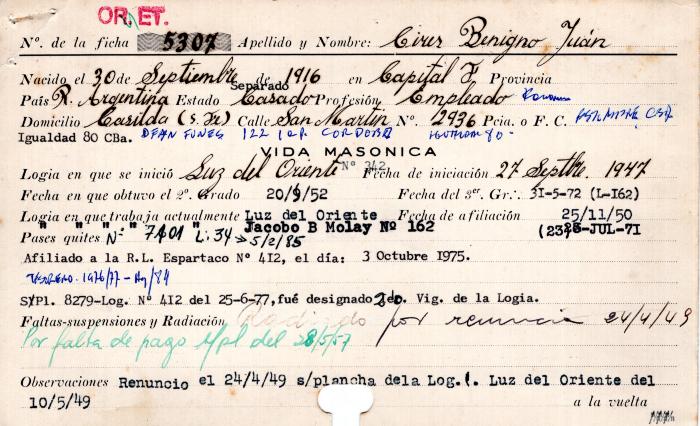 OR. ET.
Nº. de la ficha 5307 Apellido y Nombre: Cires Benigno Juán
Nacido el 30 de Septiembre de 1916 en Capital F. Provincia
Separado
País R. Argentina Estado Casado Profesión Empleado
Domicilio Casilda (S. Fe) Calle San Martin Nº. 2936 Pcia. o F. C.
Igualdad 80 CBa. DEAN FUNES 122 CORDOBA IGUALDAD 80-
VIDA MASONICA
Logia en que se inició Luz del Oriente Nº 342 Fecha de iniciación 27 Septbre. 1947
Fecha en que obtuvo el 2º. Grado 20/9/52 Fecha del 3er. Gr.: 31-5-72 (L-162)
Logia en que trabaja actualmente Luz del Oriente Fecha de afiliación 25/11/50
" " " " Jacobo B Molay Nº 162 (23 -JUL-71
Pases quites Nº 7401 L: 34 → 5/2/85
Afiliado a la R.L. Espartaco Nº 412, el día: 3 Octubre 1975.
TESORERO. 1976/77 -
S/Pl. 8279-Log. Nº 412 del 25-6-77, fué designado 2do. Vig. de la Logia.
Faltas-suspensiones y Radiación Radiado por renuncia 24/4/49
Por falta de pago s/pl del 28/5/57
Observaciones Renuncio el 24/4/49 s/plancha dela Log.·. Luz del Oriente del
10/5/49 a la vuelta